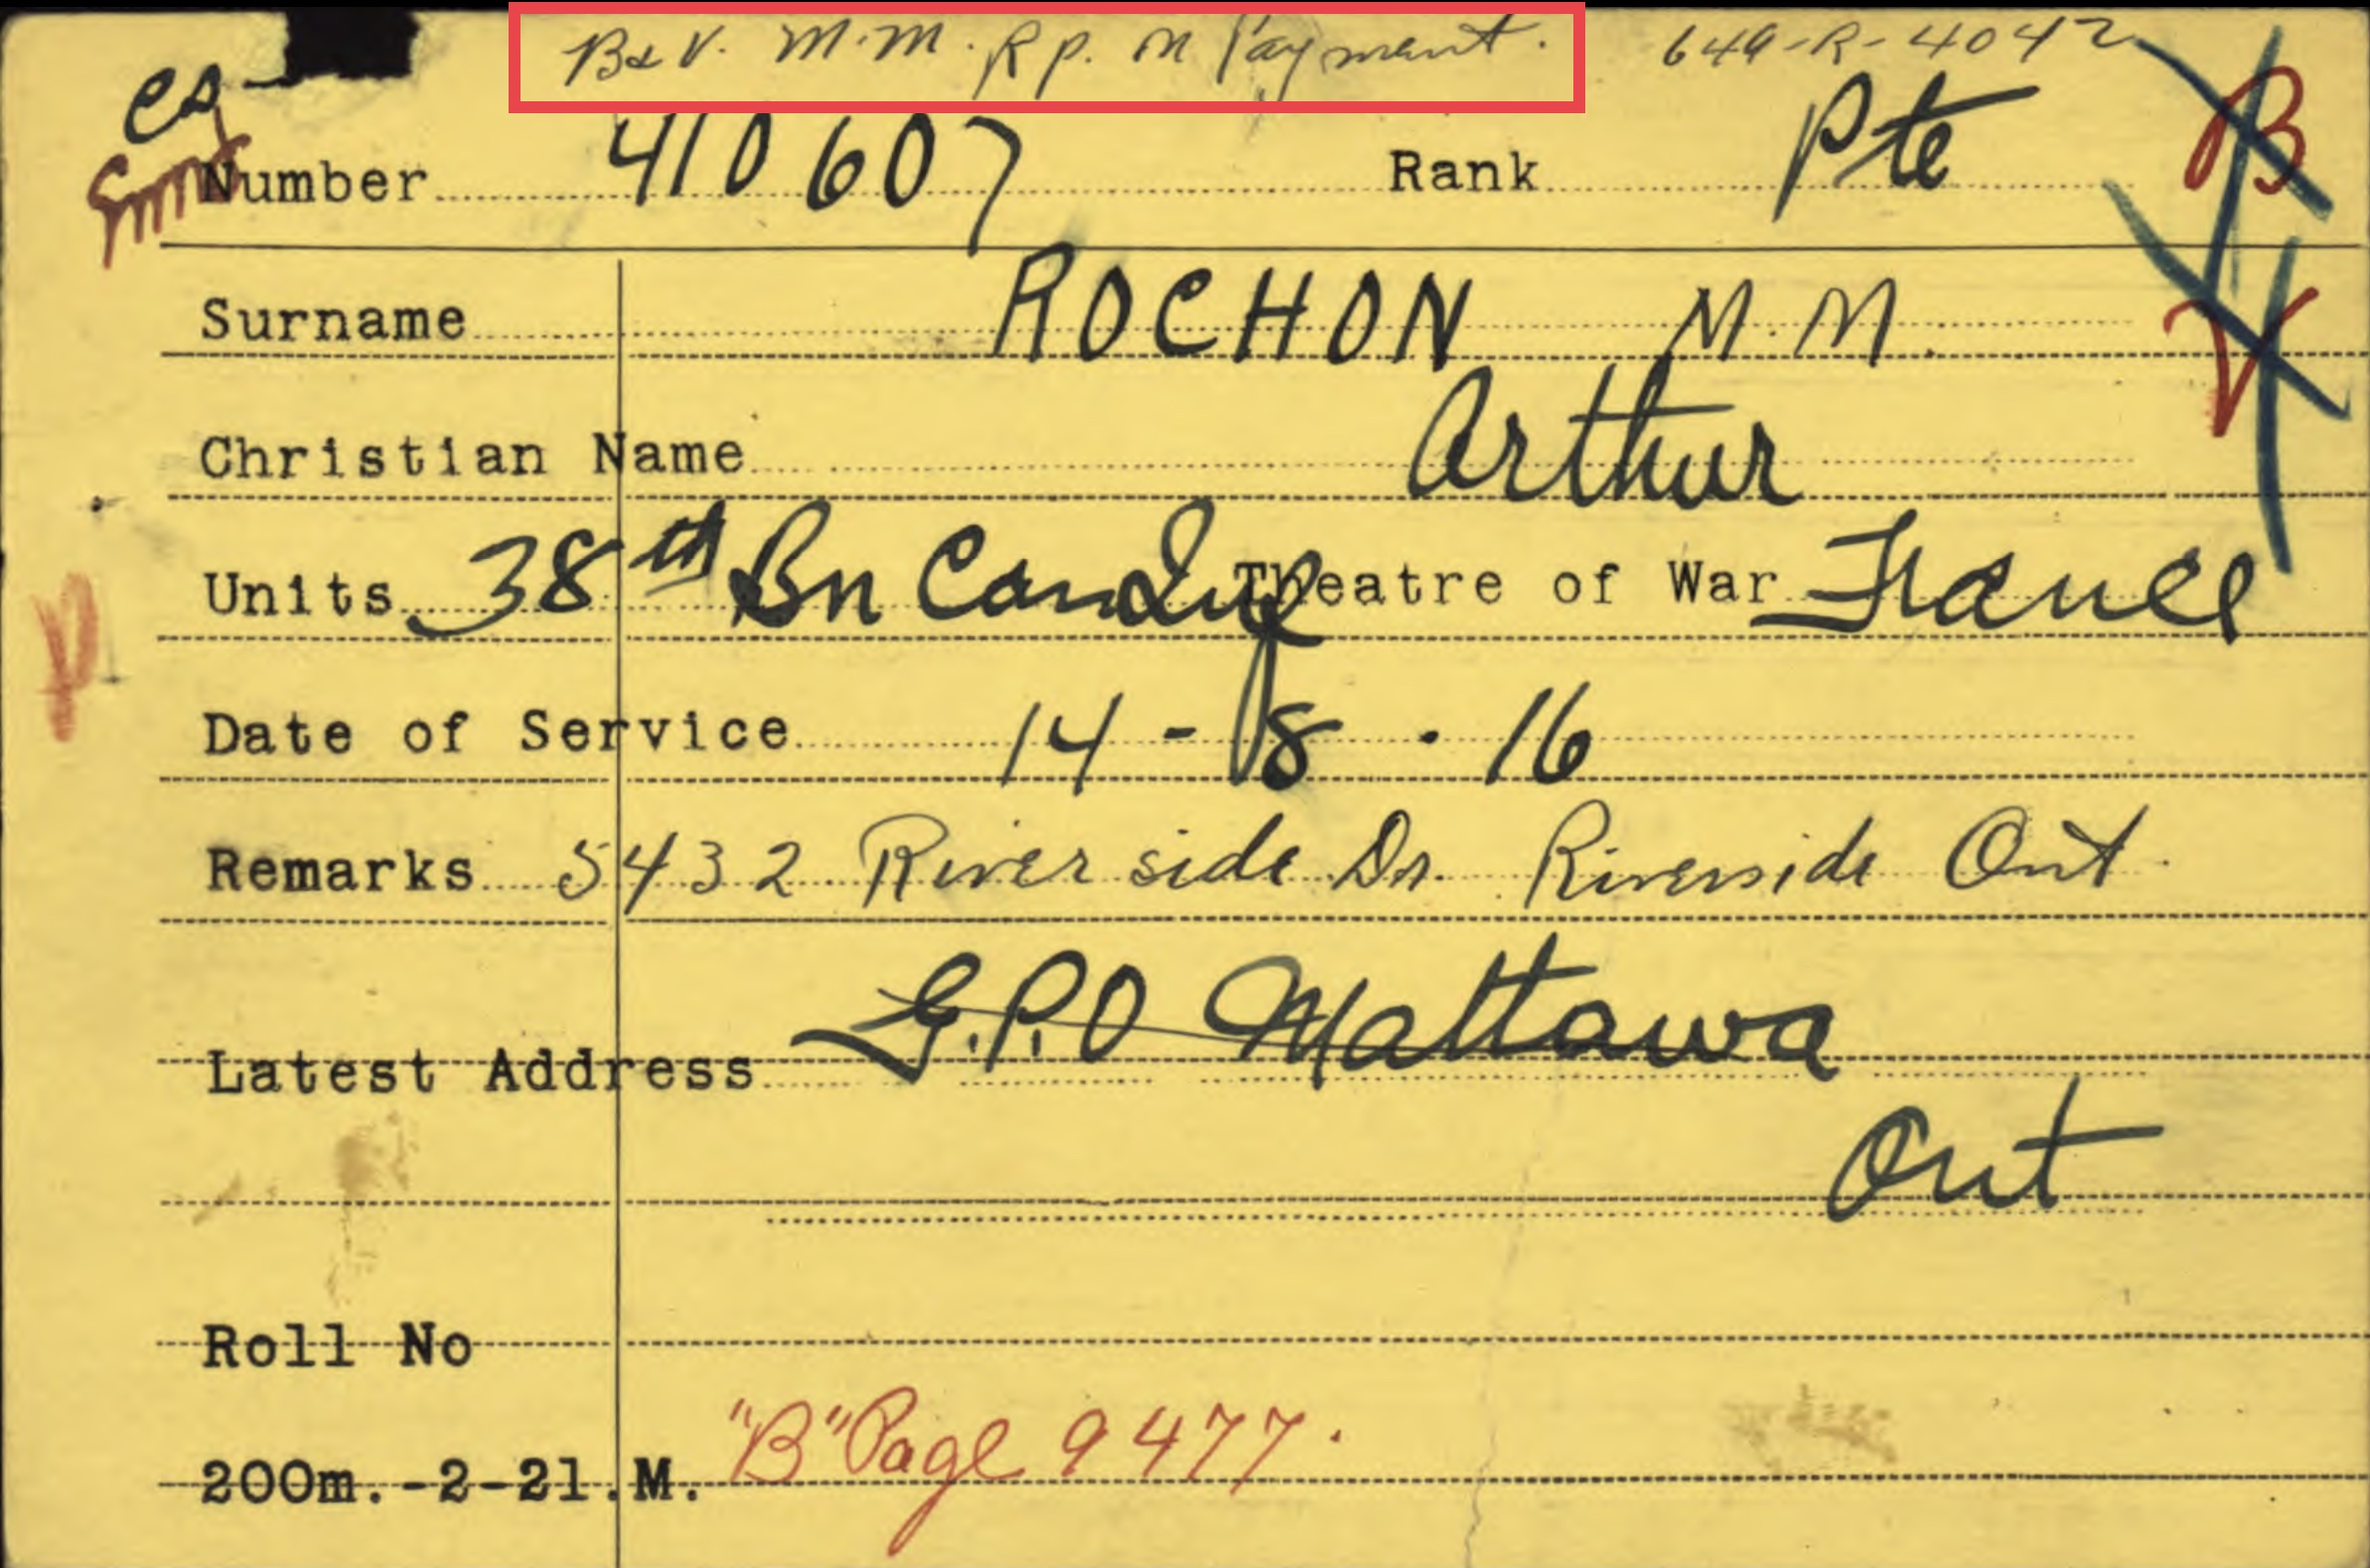 B&V. M.M. Rp. on Payment. 649-R-4042
Number 410607 Rank Pte B
Surname ROCHON M.M. V
Christian Name Arthur
Units 38th Bn Can Inf Theatre of War France
Date of Service 14-8-16
Remarks 5432 Riverside Dr. Riverside Ont.
Latest Address G.P.O Mattawa
Ont
Roll No
200m.-2-21.M. "B" Page 9477.